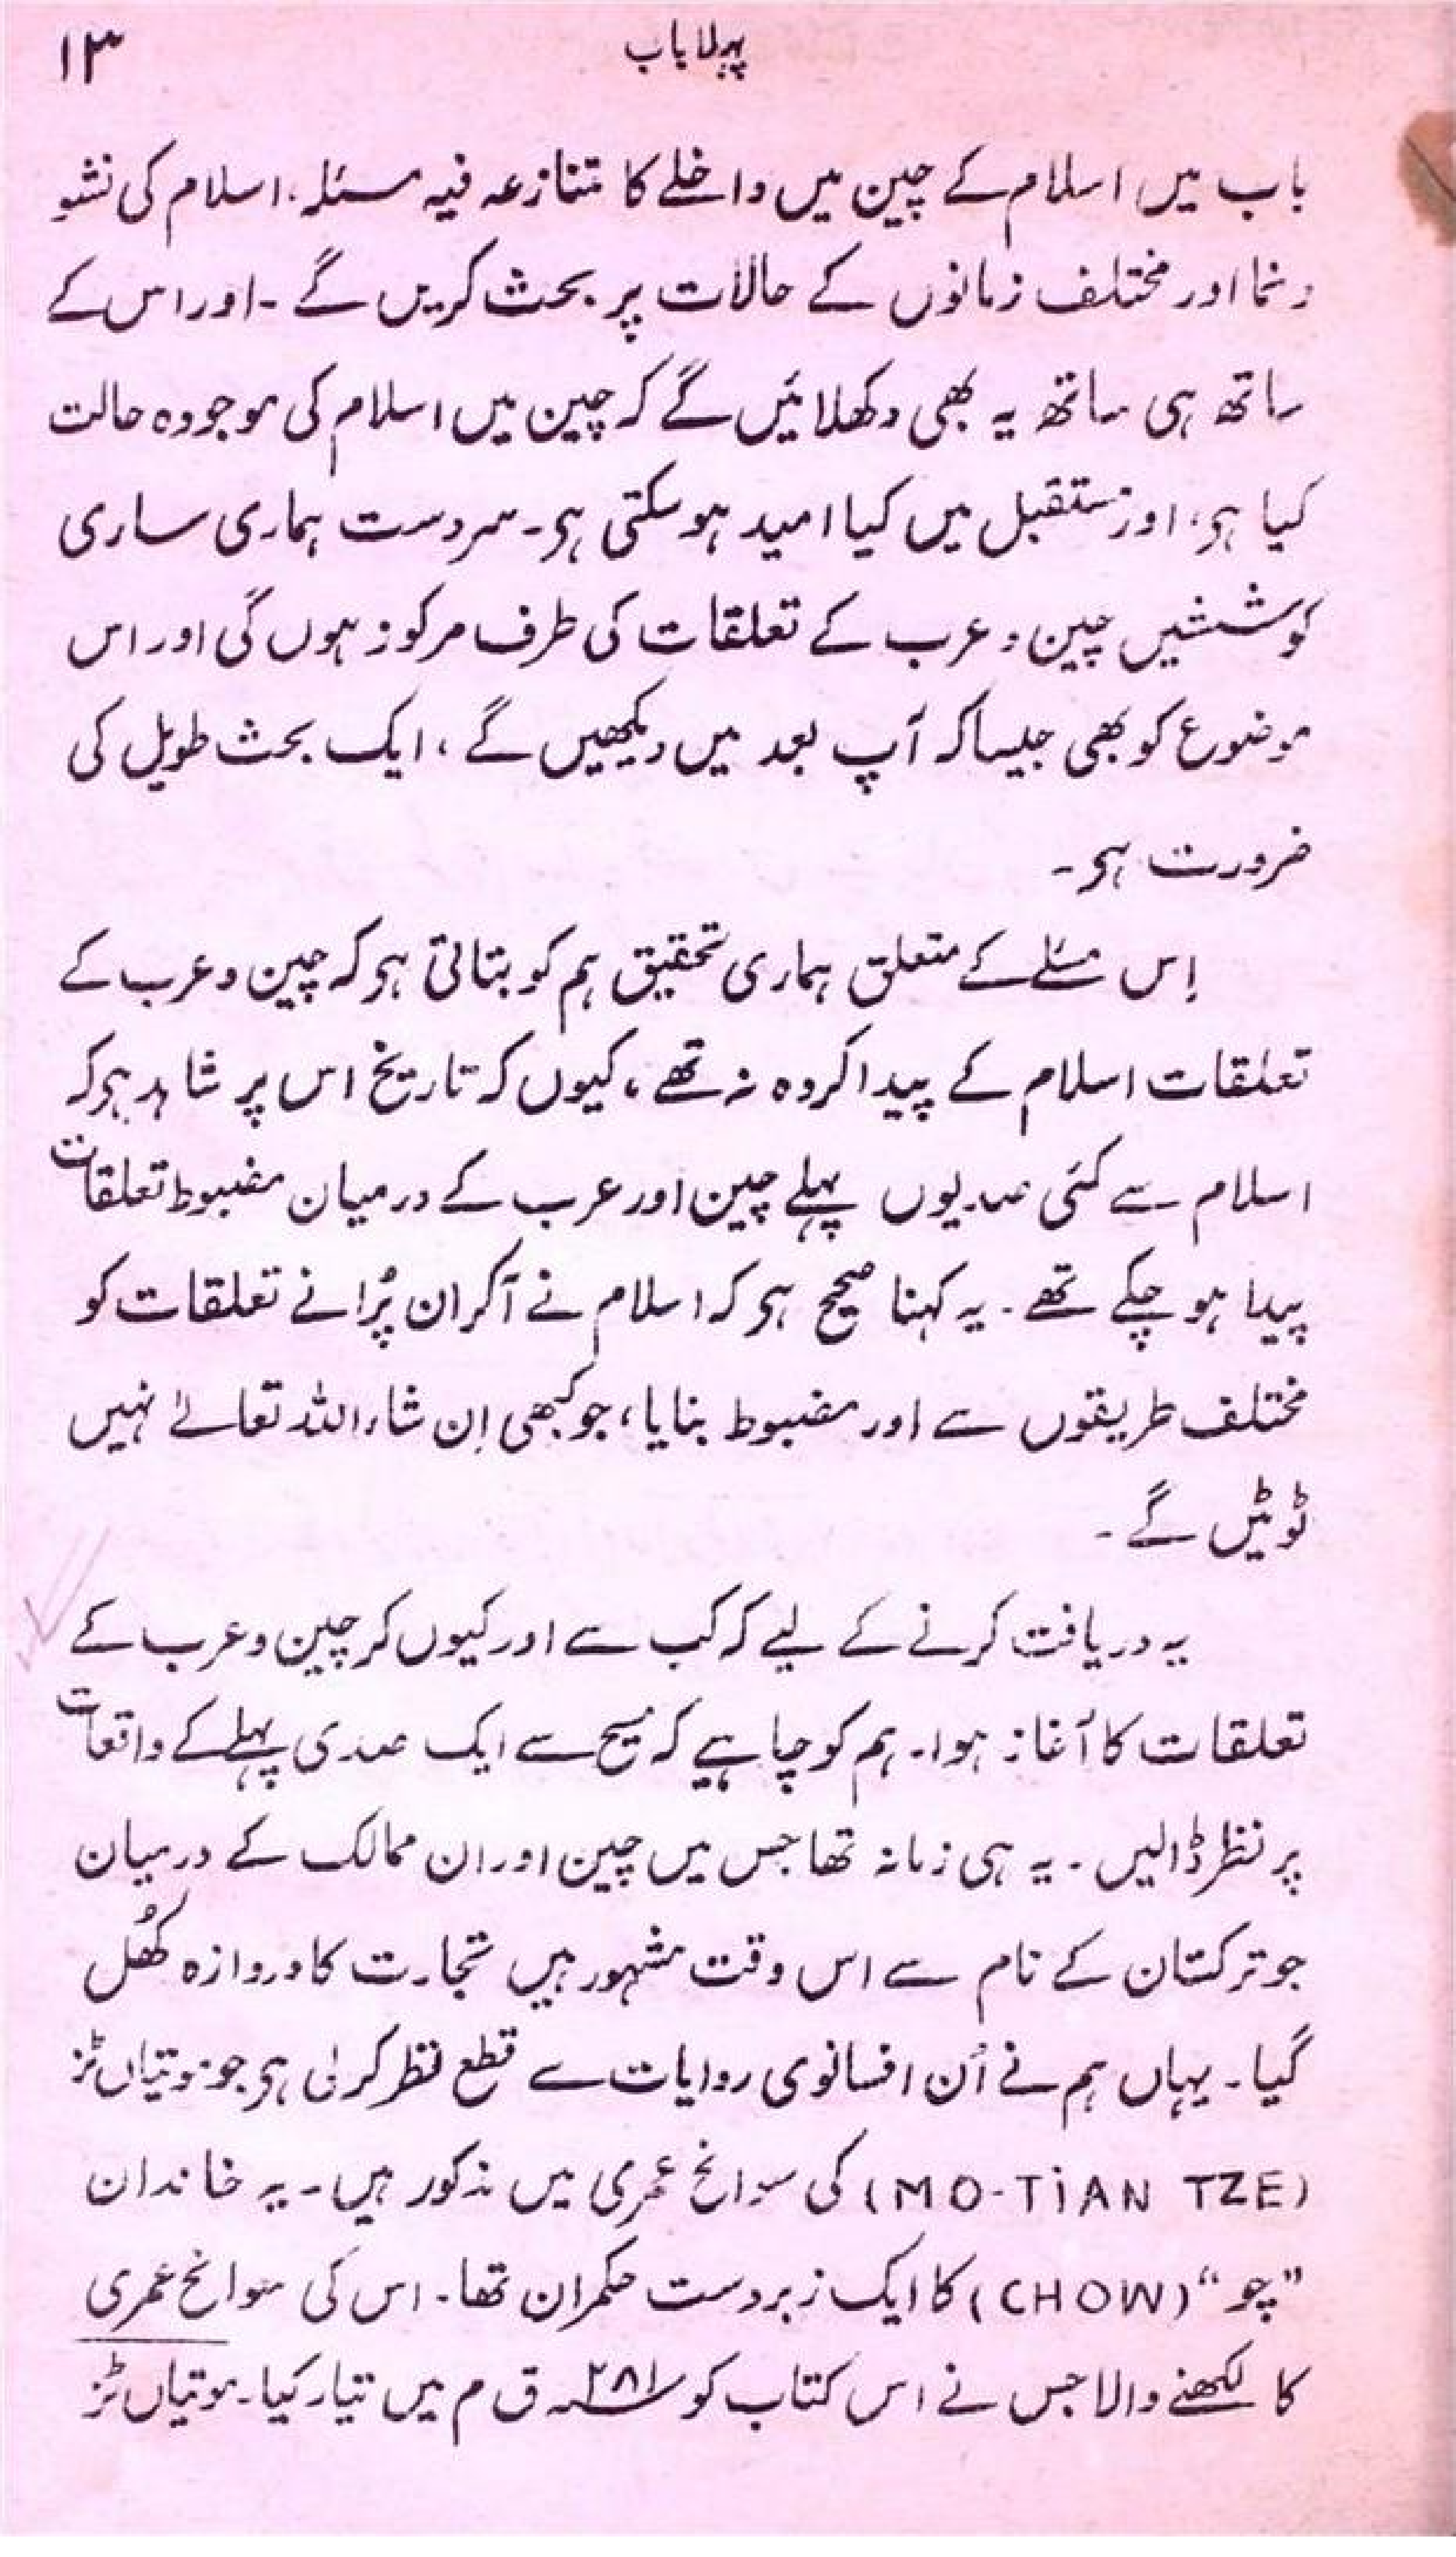 پہلا باب ۱۳
باب میں اسلام کے چین میں داخلے کا متنازعہ فیہ مسئلہ، اسلام کی نشو
ونما اور مختلف زمانوں کے حالات پر بحث کریں گے ۔ اور اس کے
ساتھ ہی ساتھ یہ بھی دکھلائیں گے کہ چین میں اسلام کی موجودہ حالت
کیا ہو، اور مستقبل میں کیا امید ہوسکتی ہو۔ سردست ہماری ساری
کوششیں چین و عرب کے تعلقات کی طرف مرکوز ہوں گی اور اس
موضوع کو بھی جیسا کہ آپ بعد میں دیکھیں گے، ایک بحث طویل کی
ضرورت ہو ۔
اِس مسئلے کے متعلق ہماری تحقیق ہم کو بتاتی ہو کہ چین و عرب کے
تعلقات اسلام کے پیدا کردہ نہ تھے، کیوں کہ تاریخ اس پر شاہد ہو کہ
اسلام سے کئی صدیوں پہلے چین اور عرب کے درمیان مضبوط تعلقات
پیدا ہو چکے تھے ۔ یہ کہنا صحیح ہو کہ اسلام نے آکر ان پُرانے تعلقات کو
مختلف طریقوں سے اور مضبوط بنایا، جو کبھی اِن شاء اللہ تعالےٰ نہیں
ٹوٹیں گے ۔
یہ دریافت کرنے کے لیے کہ کب سے اور کیوں کر چین و عرب کے
تعلقات کا آغاز ہوا۔ ہم کو چاہیے کہ مسیح سے ایک صدی پہلے کے واقعات
پر نظر ڈالیں ۔ یہ ہی زمانہ تھا جس میں چین اور ان ممالک کے درمیان
جو ترکستان کے نام سے اس وقت مشہور ہیں تجارت کا دروازہ کُھل
گیا ۔ یہاں ہم نے اُن افسانوی روایات سے قطع نظر کرلی ہو جو موتیاں ٹز
(MO-TiAN TZE) کی سوانح عمری میں مذکور ہیں ۔ یہ خاندان
”چو“ (CHOW) کا ایک زبردست حکمران تھا ۔ اس کی سوانح عمری
کا لکھنے والا جس نے اس کتاب کو ۲۸۱؁ ق م میں تیار کیا ۔ موتیاں ٹز